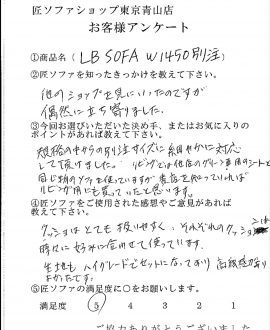 匠ソファショップ東京青山店
お客様アンケート
①商品名（LB SOFA W1450別注）
②匠ソファを知ったきっかけを教えて下さい。
他のショップを見にいったのですが
偶然に立ち寄りました。
③今回お選びいただいた決め手、またはお気に入りの
ポイントがあれば教えて下さい。
規格の中からの別注サイズに細やかに対応
して頂けました。リビングでは他店のグリーン専用のシートと
同じ類のソファを使っていますが 貴店を知っていれば
リビング用にも買っていたと思います。
④匠ソファをご使用された感想やご意見があれば
教えて下さい。
クッションはとても扱いやすく、それぞれのクッション
時々に好みに合わせて使っています。
生地もハイグレードでセットになっており高級感が有り
よかったです。
⑤匠ソファの満足度に○をお願いします。
満足度 5 4 3 2 1
ご協力ありがとうございました